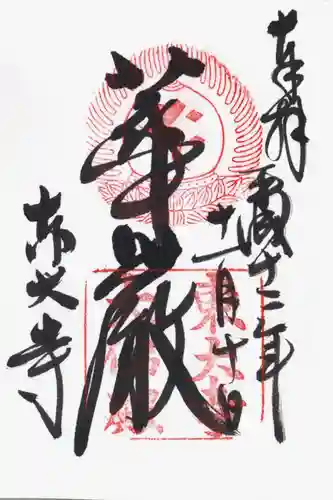 奉拝
平成十二年
十一月十日
華嚴
東大寺
東大寺